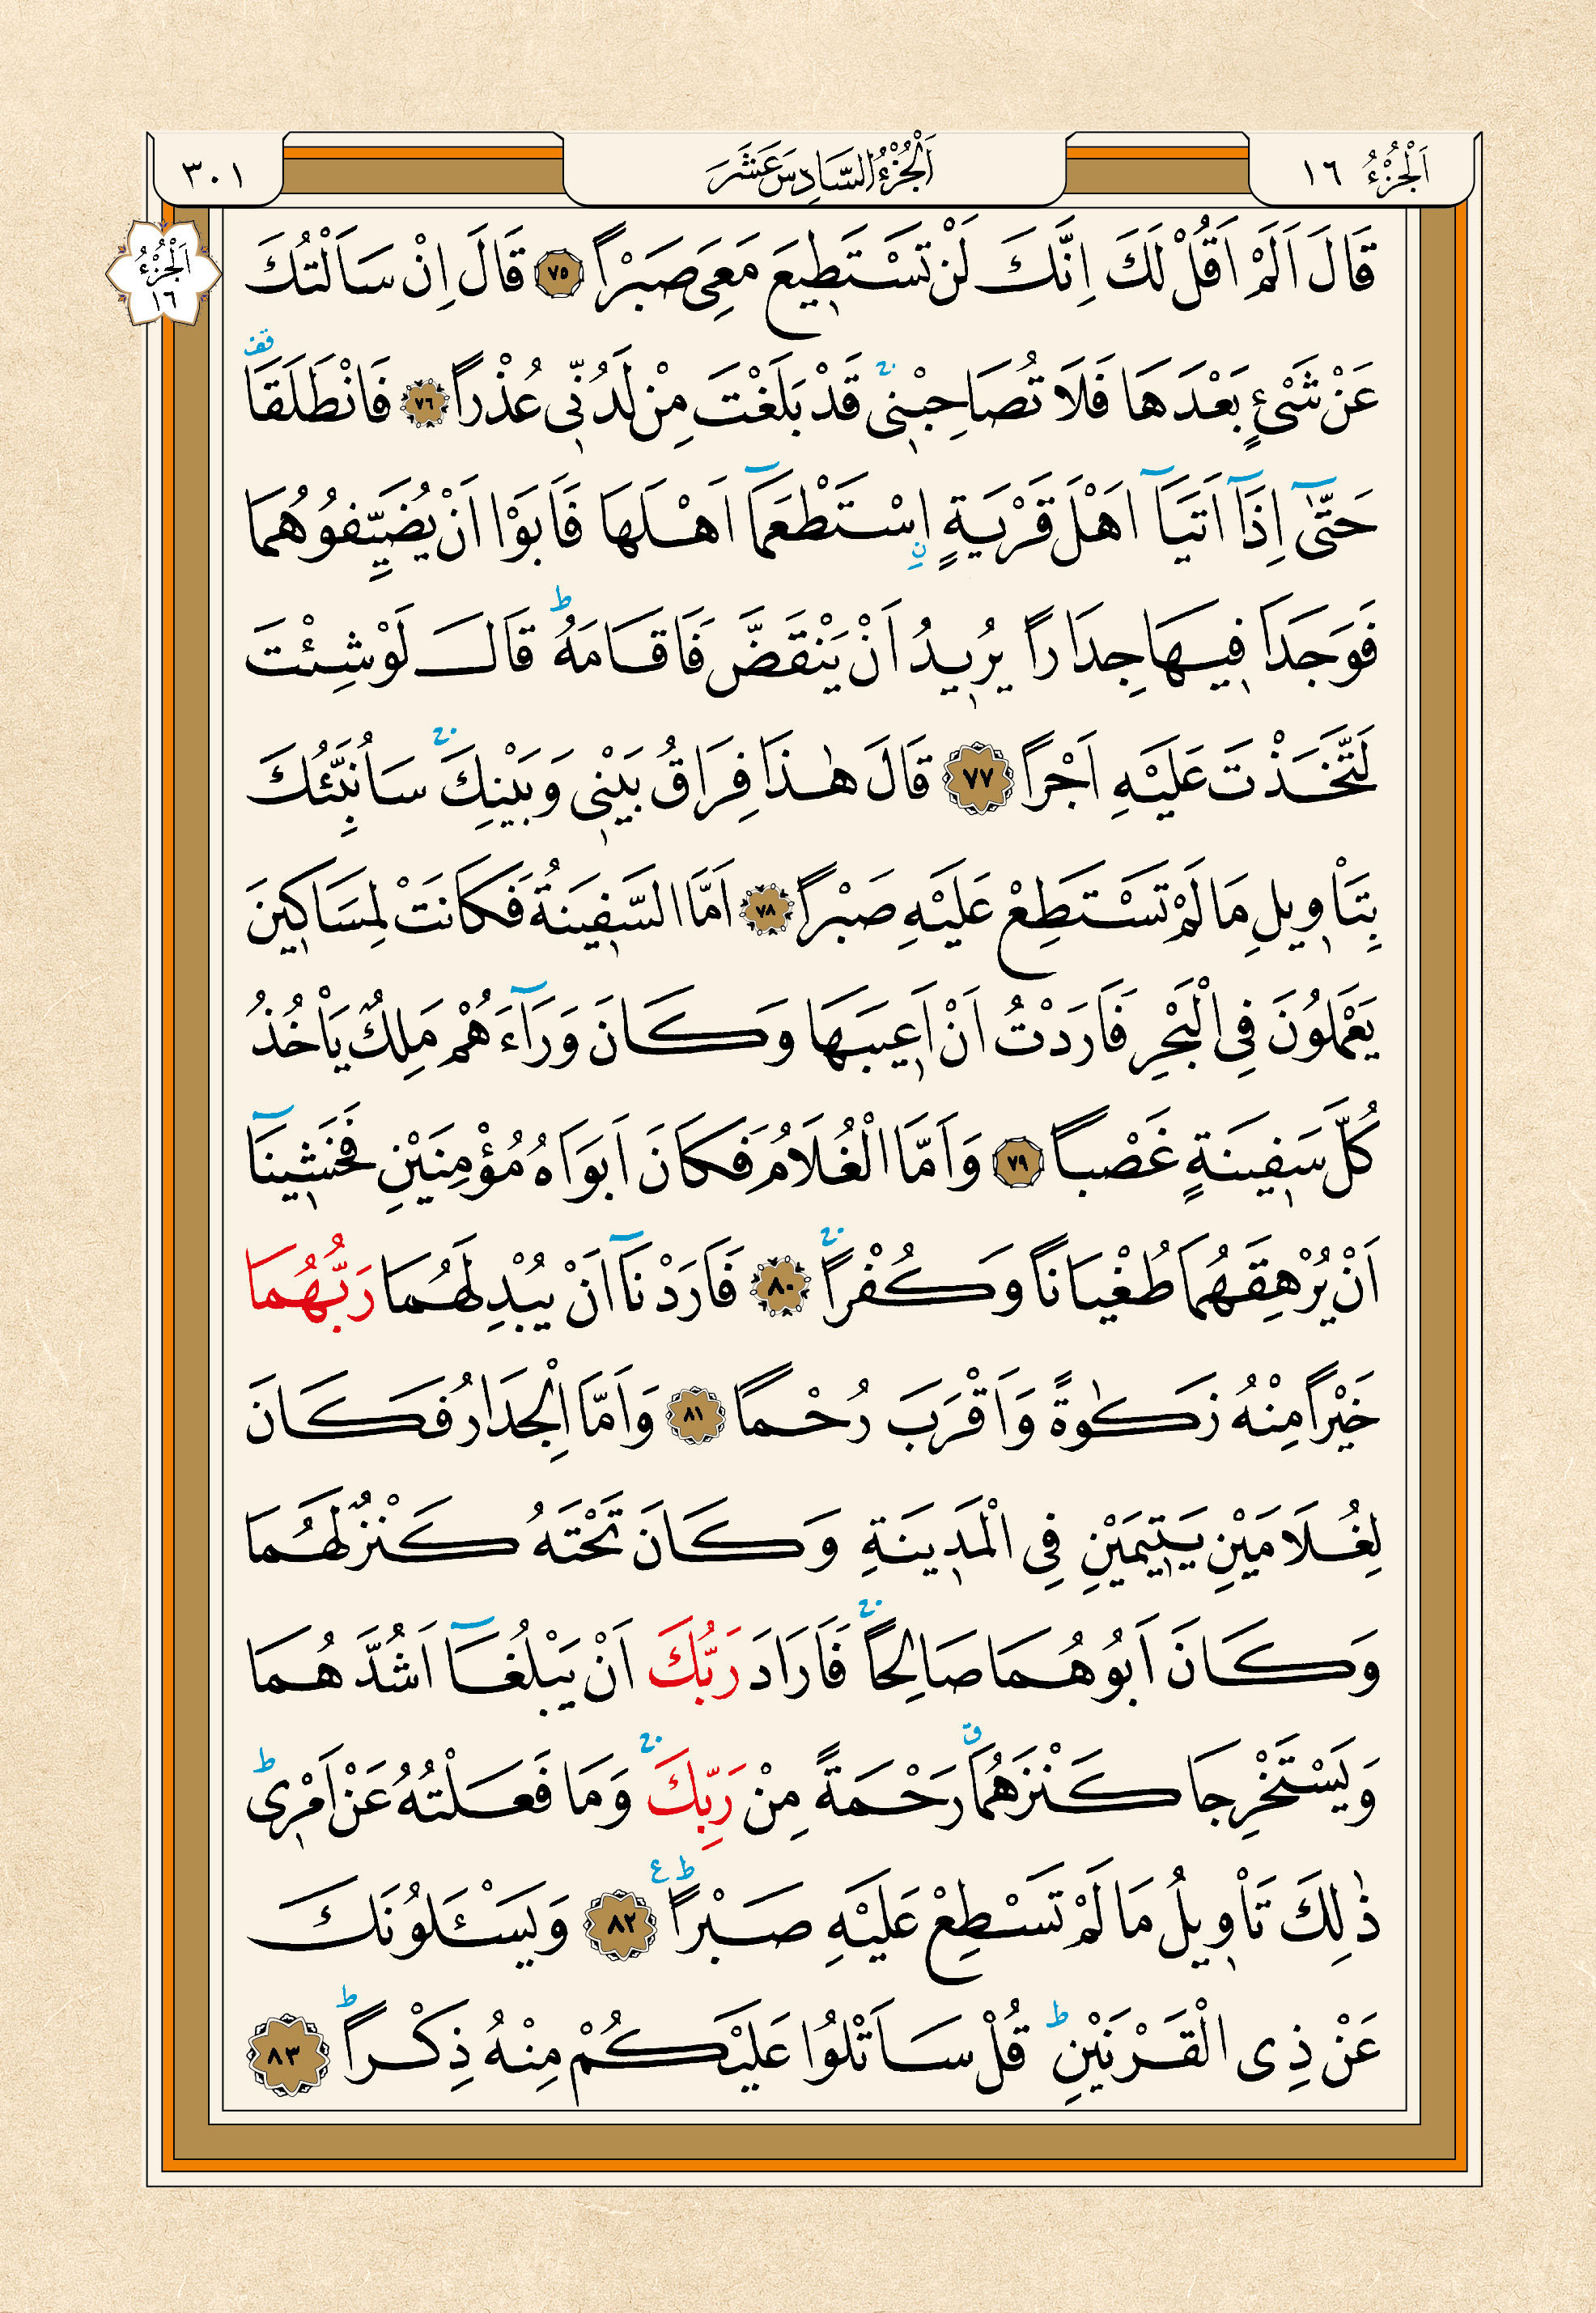 اَلْجُزْءُ ١٦
اَلْجُزْءُ السَّادِسَ عَشَرَ
٣٠١
اَلْجُزْءُ
١٦
قَالَ اَلَمْ اَقُلْ لَكَ اِنَّكَ لَنْ تَسْتَط۪يعَ مَعِيَ صَبْراً ٧٥ قَالَ اِنْ سَاَلْتُكَ
عَنْ شَيْءٍ بَعْدَهَا فَلَا تُصَاحِبْن۪يۚ قَدْ بَلَغْتَ مِنْ لَدُنّ۪ي عُذْراً ٧٦ فَانْطَلَقَا۠ قف
حَتّٰٓى اِذَٓا اَتَيَٓا اَهْلَ قَرْيَةٍۨ اسْتَطْعَمَٓا اَهْلَهَا فَاَبَوْا اَنْ يُضَيِّفُوهُمَا
فَوَجَدَا ف۪يهَا جِدَاراً يُر۪يدُ اَنْ يَنْقَضَّ فَاَقَامَهُۜ قَالَ لَوْ شِئْتَ
لَتَّخَذْتَ عَلَيْهِ اَجْراً ٧٧ قَالَ هٰذَا فِرَاقُ بَيْن۪ي وَبَيْنِكَۚ سَاُنَبِّئُكَ
بِتَأْو۪يلِ مَا لَمْ تَسْتَطِعْ عَلَيْهِ صَبْراً ٧٨ اَمَّا السَّف۪ينَةُ فَكَانَتْ لِمَسَاك۪ينَ
يَعْمَلُونَ فِي الْبَحْرِ فَاَرَدْتُ اَنْ اَع۪يبَهَا وَكَانَ وَرَٓاءَهُمْ مَلِكٌ يَأْخُذُ
كُلَّ سَف۪ينَةٍ غَصْباً ٧٩ وَاَمَّا الْغُلَامُ فَكَانَ اَبَوَاهُ مُؤْمِنَيْنِ فَخَش۪ينَٓا
اَنْ يُرْهِقَهُمَا طُغْيَاناً وَكُفْراًۚ ٨٠ فَاَرَدْنَٓا اَنْ يُبْدِلَهُمَا رَبُّهُمَا
خَيْراً مِنْهُ زَكٰوةً وَاَقْرَبَ رُحْماً ٨١ وَاَمَّا الْجِدَارُ فَكَانَ
لِغُلَامَيْنِ يَت۪يمَيْنِ فِي الْمَد۪ينَةِ وَكَانَ تَحْتَهُ كَنْزٌ لَهُمَا
وَكَانَ اَبُوهُمَا صَالِحاًۚ فَاَرَادَ رَبُّكَ اَنْ يَبْلُغَٓا اَشُدَّهُمَا
وَيَسْتَخْرِجَا كَنْزَهُمَاۗ رَحْمَةً مِنْ رَبِّكَۚ وَمَا فَعَلْتُهُ عَنْ اَمْر۪يۜ
ذٰلِكَ تَأْو۪يلُ مَا لَمْ تَسْطِعْ عَلَيْهِ صَبْراًۜ ع ٨٢ وَيَسْـَٔلُونَكَ
عَنْ ذِي الْقَرْنَيْنِۜ قُلْ سَاَتْلُوا عَلَيْكُمْ مِنْهُ ذِكْراًۜ ٨٣